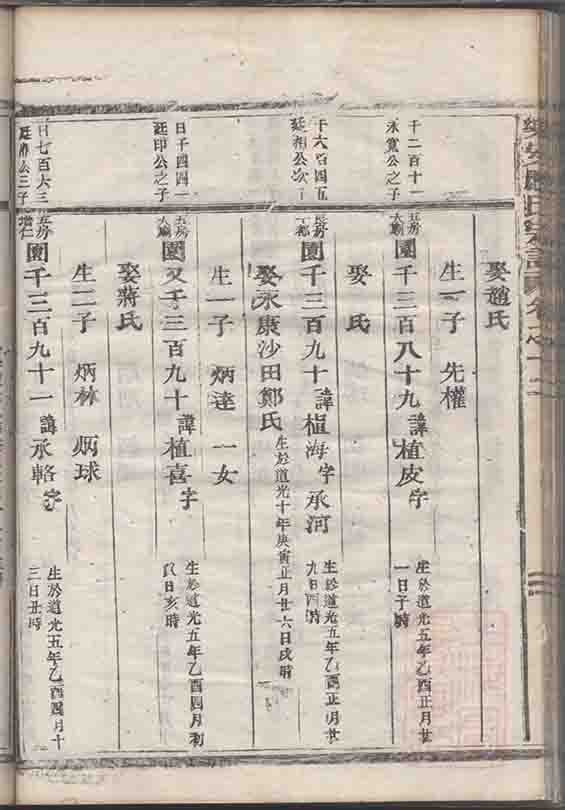 娶趙氏
生一子 先權
千二百十一
永寬公之子
五房
大廟
園千三百八十九 諱植皮字
生於道光五年乙酉正月廿
一日子時
娶 氏
千六百四五
廷相公次子
園千三百九十 諱植海字承河
生於道光五年乙酉正月廿
九日酉時
娶永康沙田鄭氏 生於道光十年庚寅正月廿六日戌時
生一子 炳達 一女
日千四四一
廷印公之子
五房
大廟
園又千三百九十 諱植喜字
生於道光五年乙酉四月初
日亥時
娶蔣氏
生二子 炳林 炳球
日七百六三
公三子
五房
園千三百九十一 諱承輅字
生於道光五年乙酉四月十
三日丑時